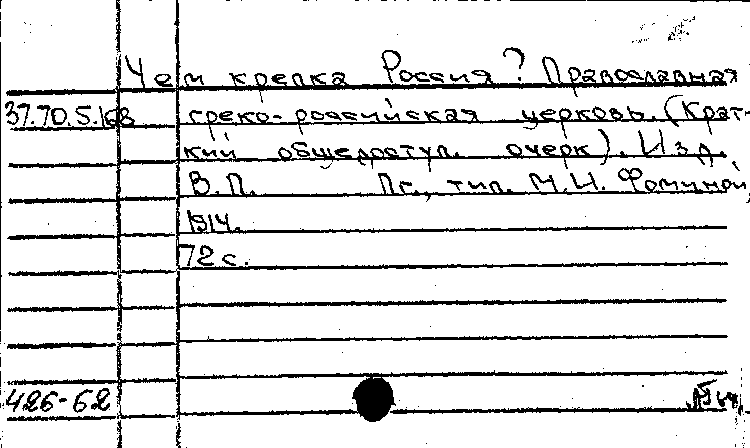 Чем крепка Россия? Православная
37.70.5.168 греко-российская церковь. (Крат-
кий общедоступ. очерк). Изд.
В.П. Пг., тип. М.И. Фоминой,
1914.
72 с.
426-62